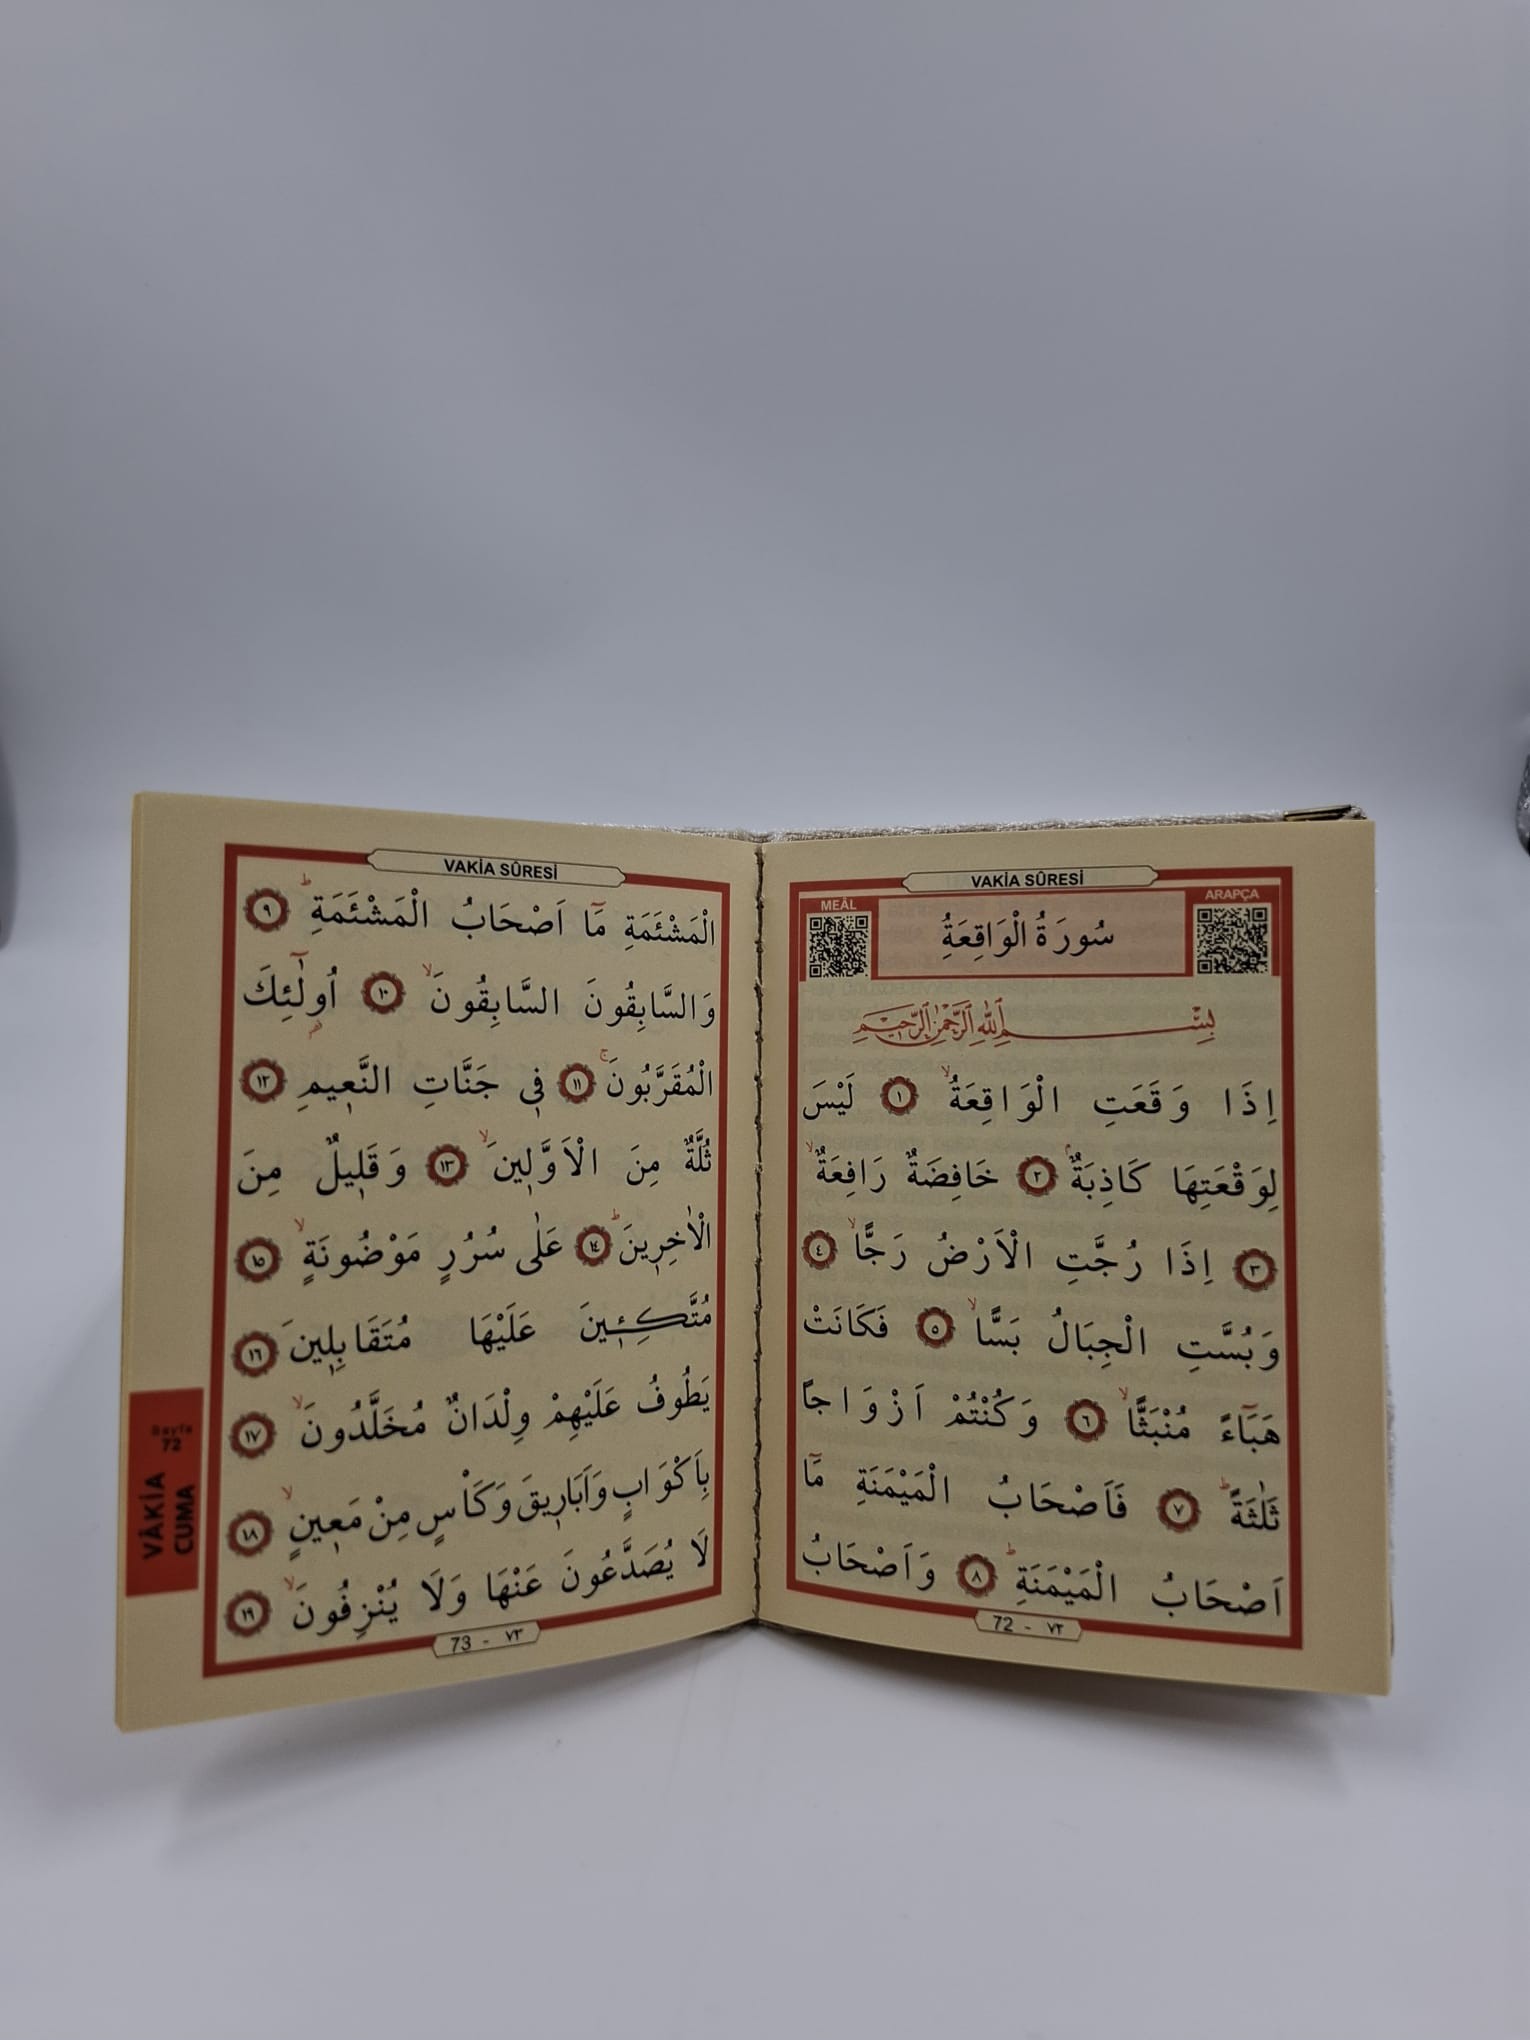 VAKİA SÛRESİ
ARAPÇA
MEÂL
سُورَةُ الْوَاقِعَةُِ
بِسْمِ اللّٰهِ الرَّحْمٰنِ الرَّحِيمِ
اِذَا وَقَعَتِ الْوَاقِعَةُۙ ﴿١﴾ لَيْسَ
لِوَقْعَتِهَا كَاذِبَةٌۢ ﴿٢﴾ خَافِضَةٌ رَافِعَةٌۙ
﴿٣﴾ اِذَا رُجَّتِ الْاَرْضُ رَجًّاۙ ﴿٤﴾
وَبُسَّتِ الْجِبَالُ بَسًّاۙ ﴿٥﴾ فَكَانَتْ
هَبَٓاءً مُنْبَثًّاۙ ﴿٦﴾ وَكُنْتُمْ اَزْوَاجًا
ثَلٰثَةًۜ ﴿٧﴾ فَاَصْحَابُ الْمَيْمَنَةِ مَٓا
اَصْحَابُ الْمَيْمَنَةِۜ ﴿٨﴾ وَاَصْحَابُ
72 - ٧٢
VAKİA SÛRESİ
الْمَشْئَمَةِ مَٓا اَصْحَابُ الْمَشْئَمَةِۜ ﴿٩﴾
وَالسَّابِقُونَ السَّابِقُونَۙ ﴿١٠﴾ اُولٰٓئِكَ
الْمُقَرَّبُونَۚ ﴿١١﴾ فٖي جَنَّاتِ النَّعٖيمِ ﴿١٢﴾
ثُلَّةٌ مِنَ الْاَوَّلٖينَۙ ﴿١٣﴾ وَقَلٖيلٌ مِنَ
الْاٰخِرٖينَۜ ﴿١٤﴾ عَلٰى سُرُرٍ مَوْضُونَةٍۙ ﴿١٥﴾
مُتَّكِـٖٔينَ عَلَيْهَا مُتَقَابِلٖينَ ﴿١٦﴾
يَطُوفُ عَلَيْهِمْ وِلْدَانٌ مُخَلَّدُونَۙ ﴿١٧﴾
بِاَكْوَابٍ وَاَبَارٖيقَ وَكَاْسٍ مِنْ مَعٖينٍۙ ﴿١٨﴾
لَا يُصَدَّعُونَ عَنْهَا وَلَا يُنْزِفُونَۙ ﴿١٩﴾
73 - ٧٣
Sayfa
72
VÂKİA
CUMA